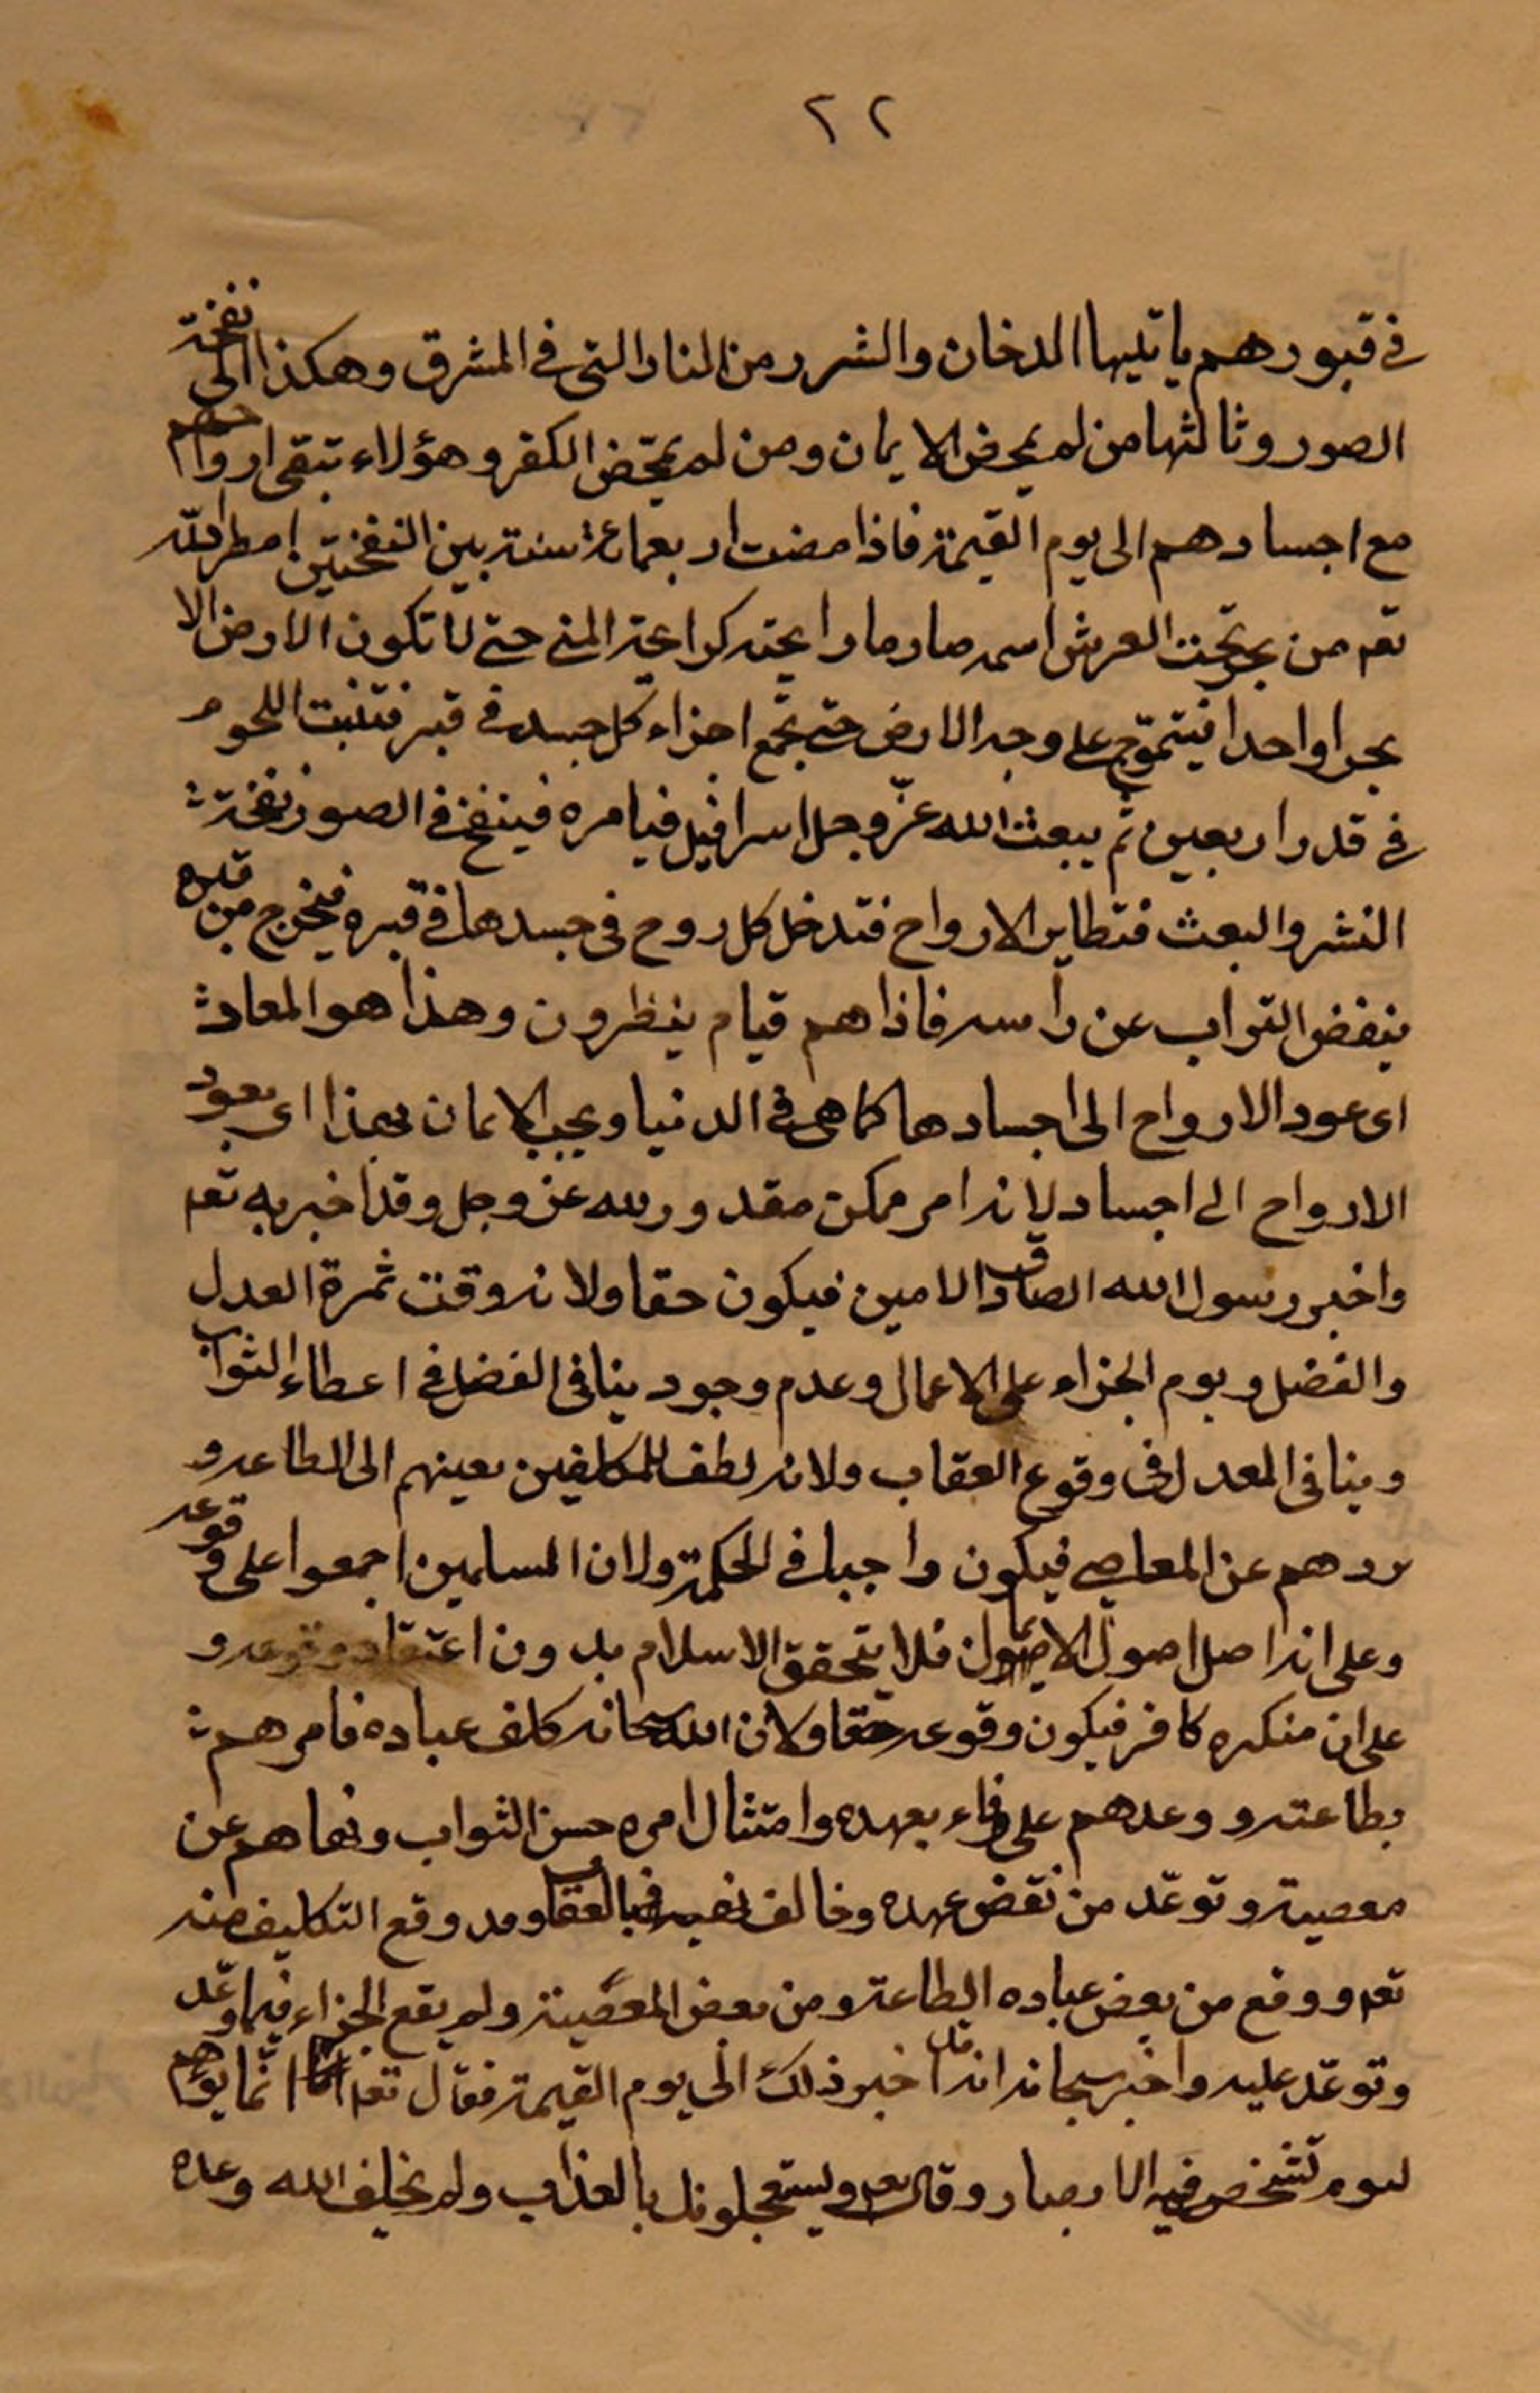 ٢٢
في قبورهم ياتيها الدخان والشرر من النار التي في المشرق وهكذا الى نفخة
الصور وثالثها من لم يمحض الايمان ومن لم يمحّض الكفر وهؤلاء تبقى ارواحهم
مع اجسادهم الى يوم القيمة فاذا مضت اربعمائة سنة بين النفختين امطر الله
تعه من بحر تحت العرش اسمه صاد ماء رايحته كرايحة المني حتى لا تكون الارض الا
بحرا واحدا فيتموّج على وجه الارض حتى تجمع اجزاء كل جسد في قبر فتنبت اللحوم
في قدر اربعين ثم يبعث الله عزّ وجل اسرافيل فيامره فينفخ في الصور نفخة
النشر والبعث فتطاير الارواح فتدخل كل روح في جسدها في قبره فيخرج من قبره
ينفض التراب عن رأسه فاذا هم قيام ينظرون وهذا هو المعاد
اى عود الارواح الى اجسادها كما هى في الدنيا ويجب الايمان بهذا اى بعود
الارواح الى اجساد لانه امر ممكن مقدور لله عز وجل وقد اخبر به تعه
واخبر رسول الله الصادق الامين فيكون حقا ولانه وقت ثمرة العدل
والفضل ويوم الجزاء على الاعمال وعدم وجود ينافى الفضل في اعطاء الثواب
وينافى العدل في وقوع العقاب ولانه لطف للمكلفين يعينهم الى الطاعة و
يردهم عن المعاصي فيكون واجبا في الحكمة ولان المسلمين اجمعوا على وقوعه
وعلى انه اصل اصول الايمان فلا يتحقق الاسلام بدون اعتقاد وقوعه و
على ان منكره كافر فيكون وقوعه حقا ولان الله سبحانه كلف عباده فامرهم
بطاعته ووعدهم على وفاء بعهده وامتثال امره حسن الثواب ونهاهم عن
معصيته وتوعّد من نقض عهده وخالف نهيه بالعقاب وقد وقع التكليف منه
تعه ووقع من بعض عباده الطاعة ومن بعض المعصية ولم يقع الجزاء فيما وعّد
وتوعّد عليه واخبر سبحانه انه قد اخبر ذلك الى يوم القيمة فقال تعه انّما يؤخرهم
ليوم تشخص فيه الابصار وقال تعه ويستعجلونك بالعذاب ولم يخلف الله وعده